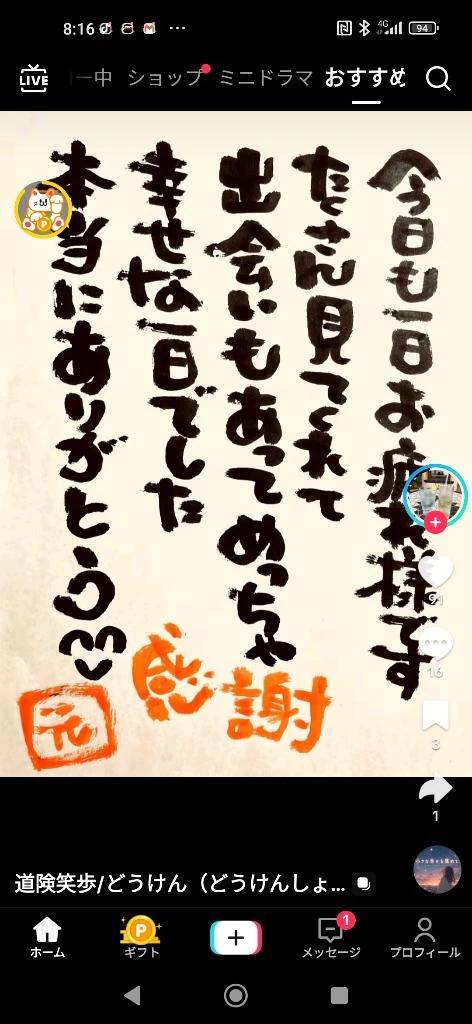 8:16
4G
94
LIVE
ー中
ショップ
ミニドラマ
おすすめ
今日も一日お疲れ様です
たくさん見てくれて
出会いもあってめっちゃ
幸せな一日でした
本当にありがとう
感謝
元
91
16
3
1
道険笑歩/どうけん（どうけんしょ...
ホーム
ギフト
メッセージ
1
プロフィール